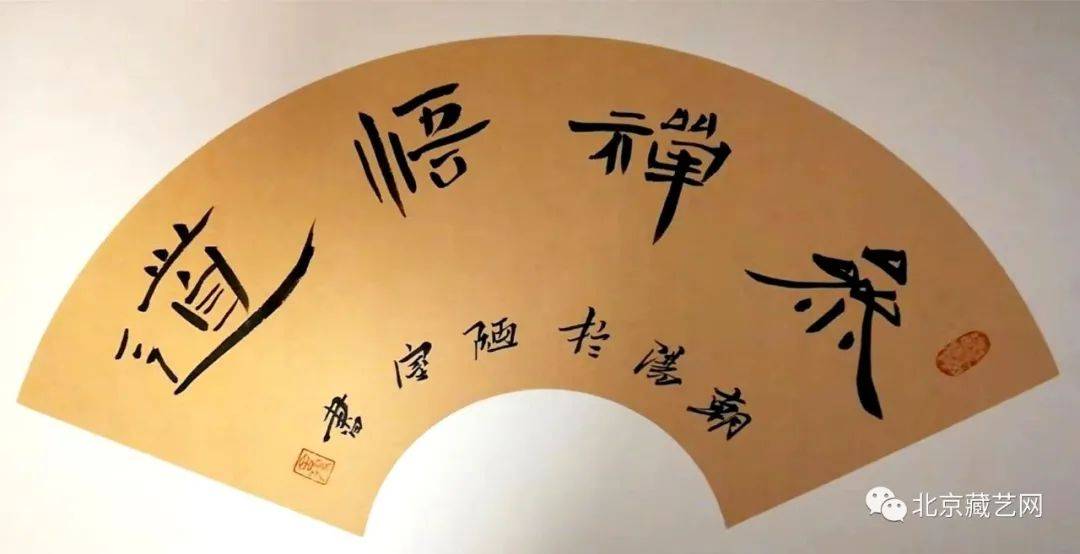 參禪悟道
於陋室書
北京藏艺网